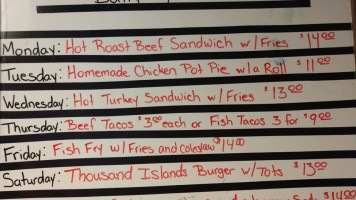 Monday: Hot Roast Beef Sandwich w/ Fries $14.00
Tuesday: Homemade Chicken Pot Pie w/a Roll $11.00
Wednesday: Hot Turkey Sandwich w/ Fries $13.00
Thursday: Beef Tacos $3.00 each or Fish Tacos 3 for $9.00
Friday: Fish Fry w/ Fries and Coleslaw $14.00
Saturday: Thousand Islands Burger w/ Tots $13.00
$14.00